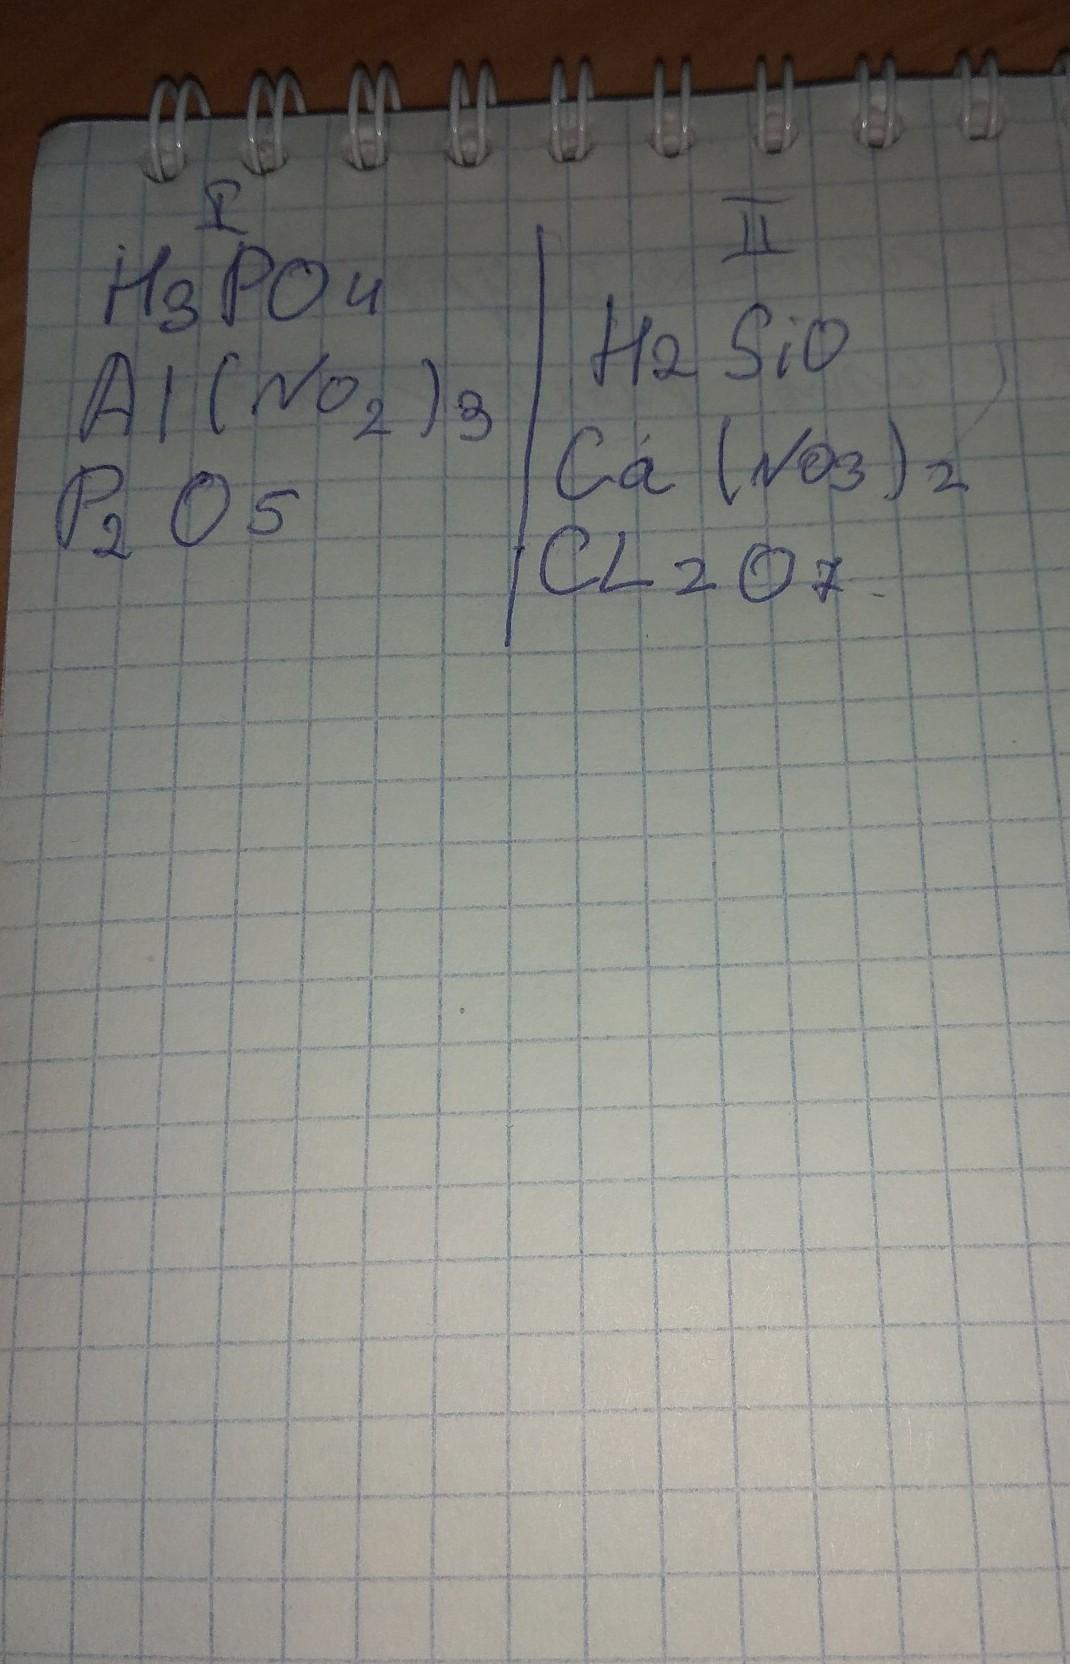 I
H3PO4
Al(NO2)3
P2O5
II
H2SiO
Ca(NO3)2
CL2O7